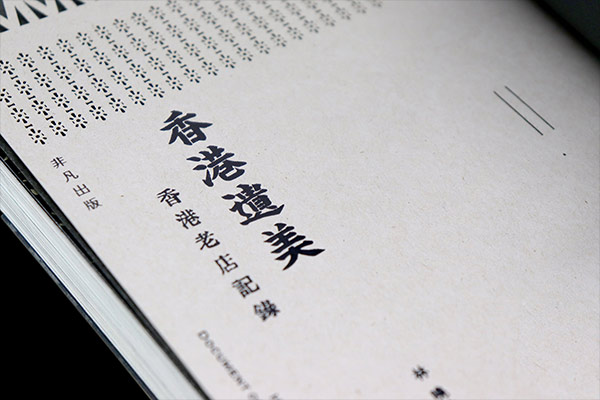 香港遺美
香港老店記錄
非凡出版
DOCUMENT
林